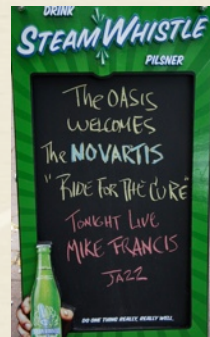 DRINK
STEAM WHISTLE
PILSNER
The OASIS
WELCOMES
The NOVARTIS
"RIDE FOR THE CURE"
TONIGHT LIVE
MIKE FRANCIS
JAZZ
DO ONE THING REALLY, REALLY WELL.